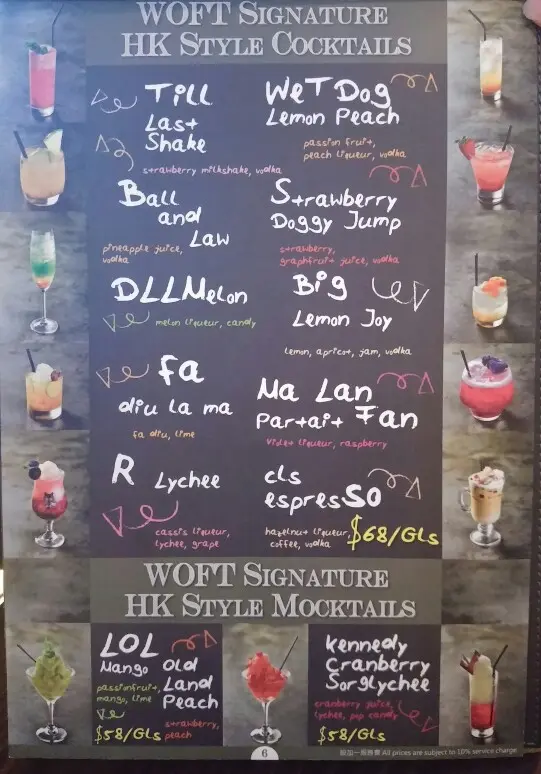 WOFT SIGNATURE
HK STYLE COCKTAILS
Till
Last
Shake
strawberry milkshake, vodka
Wet Dog
Lemon Peach
passion fruit,
peach liqueur, vodka
Ball
and
Law
pineapple juice,
vodka
Strawberry
Doggy Jump
strawberry,
graphfruit juice, vodka
DLLMelon
melon liqueur, candy
Big
Lemon Joy
lemon, apricot, jam, vodka
fa
diu la ma
fa diu, lime
Ma Lan
Partait Fan
violet liqueur, raspberry
R Lychee
cassis liqueur,
lychee, grape
cls
espresso
hazelnut liqueur,
coffee, vodka
$68/GLs
WOFT SIGNATURE
HK STYLE MOCKTAILS
LOL
Mango
passionfruit,
mango, lime
$58/GLs
Old
Land
Peach
strawberry,
peach
kennedy
Cranberry
Sorglychee
cranberry juice,
lychee, pop candy
$58/GLs
6
設加一服務費 All prices are subject to 10% service charge